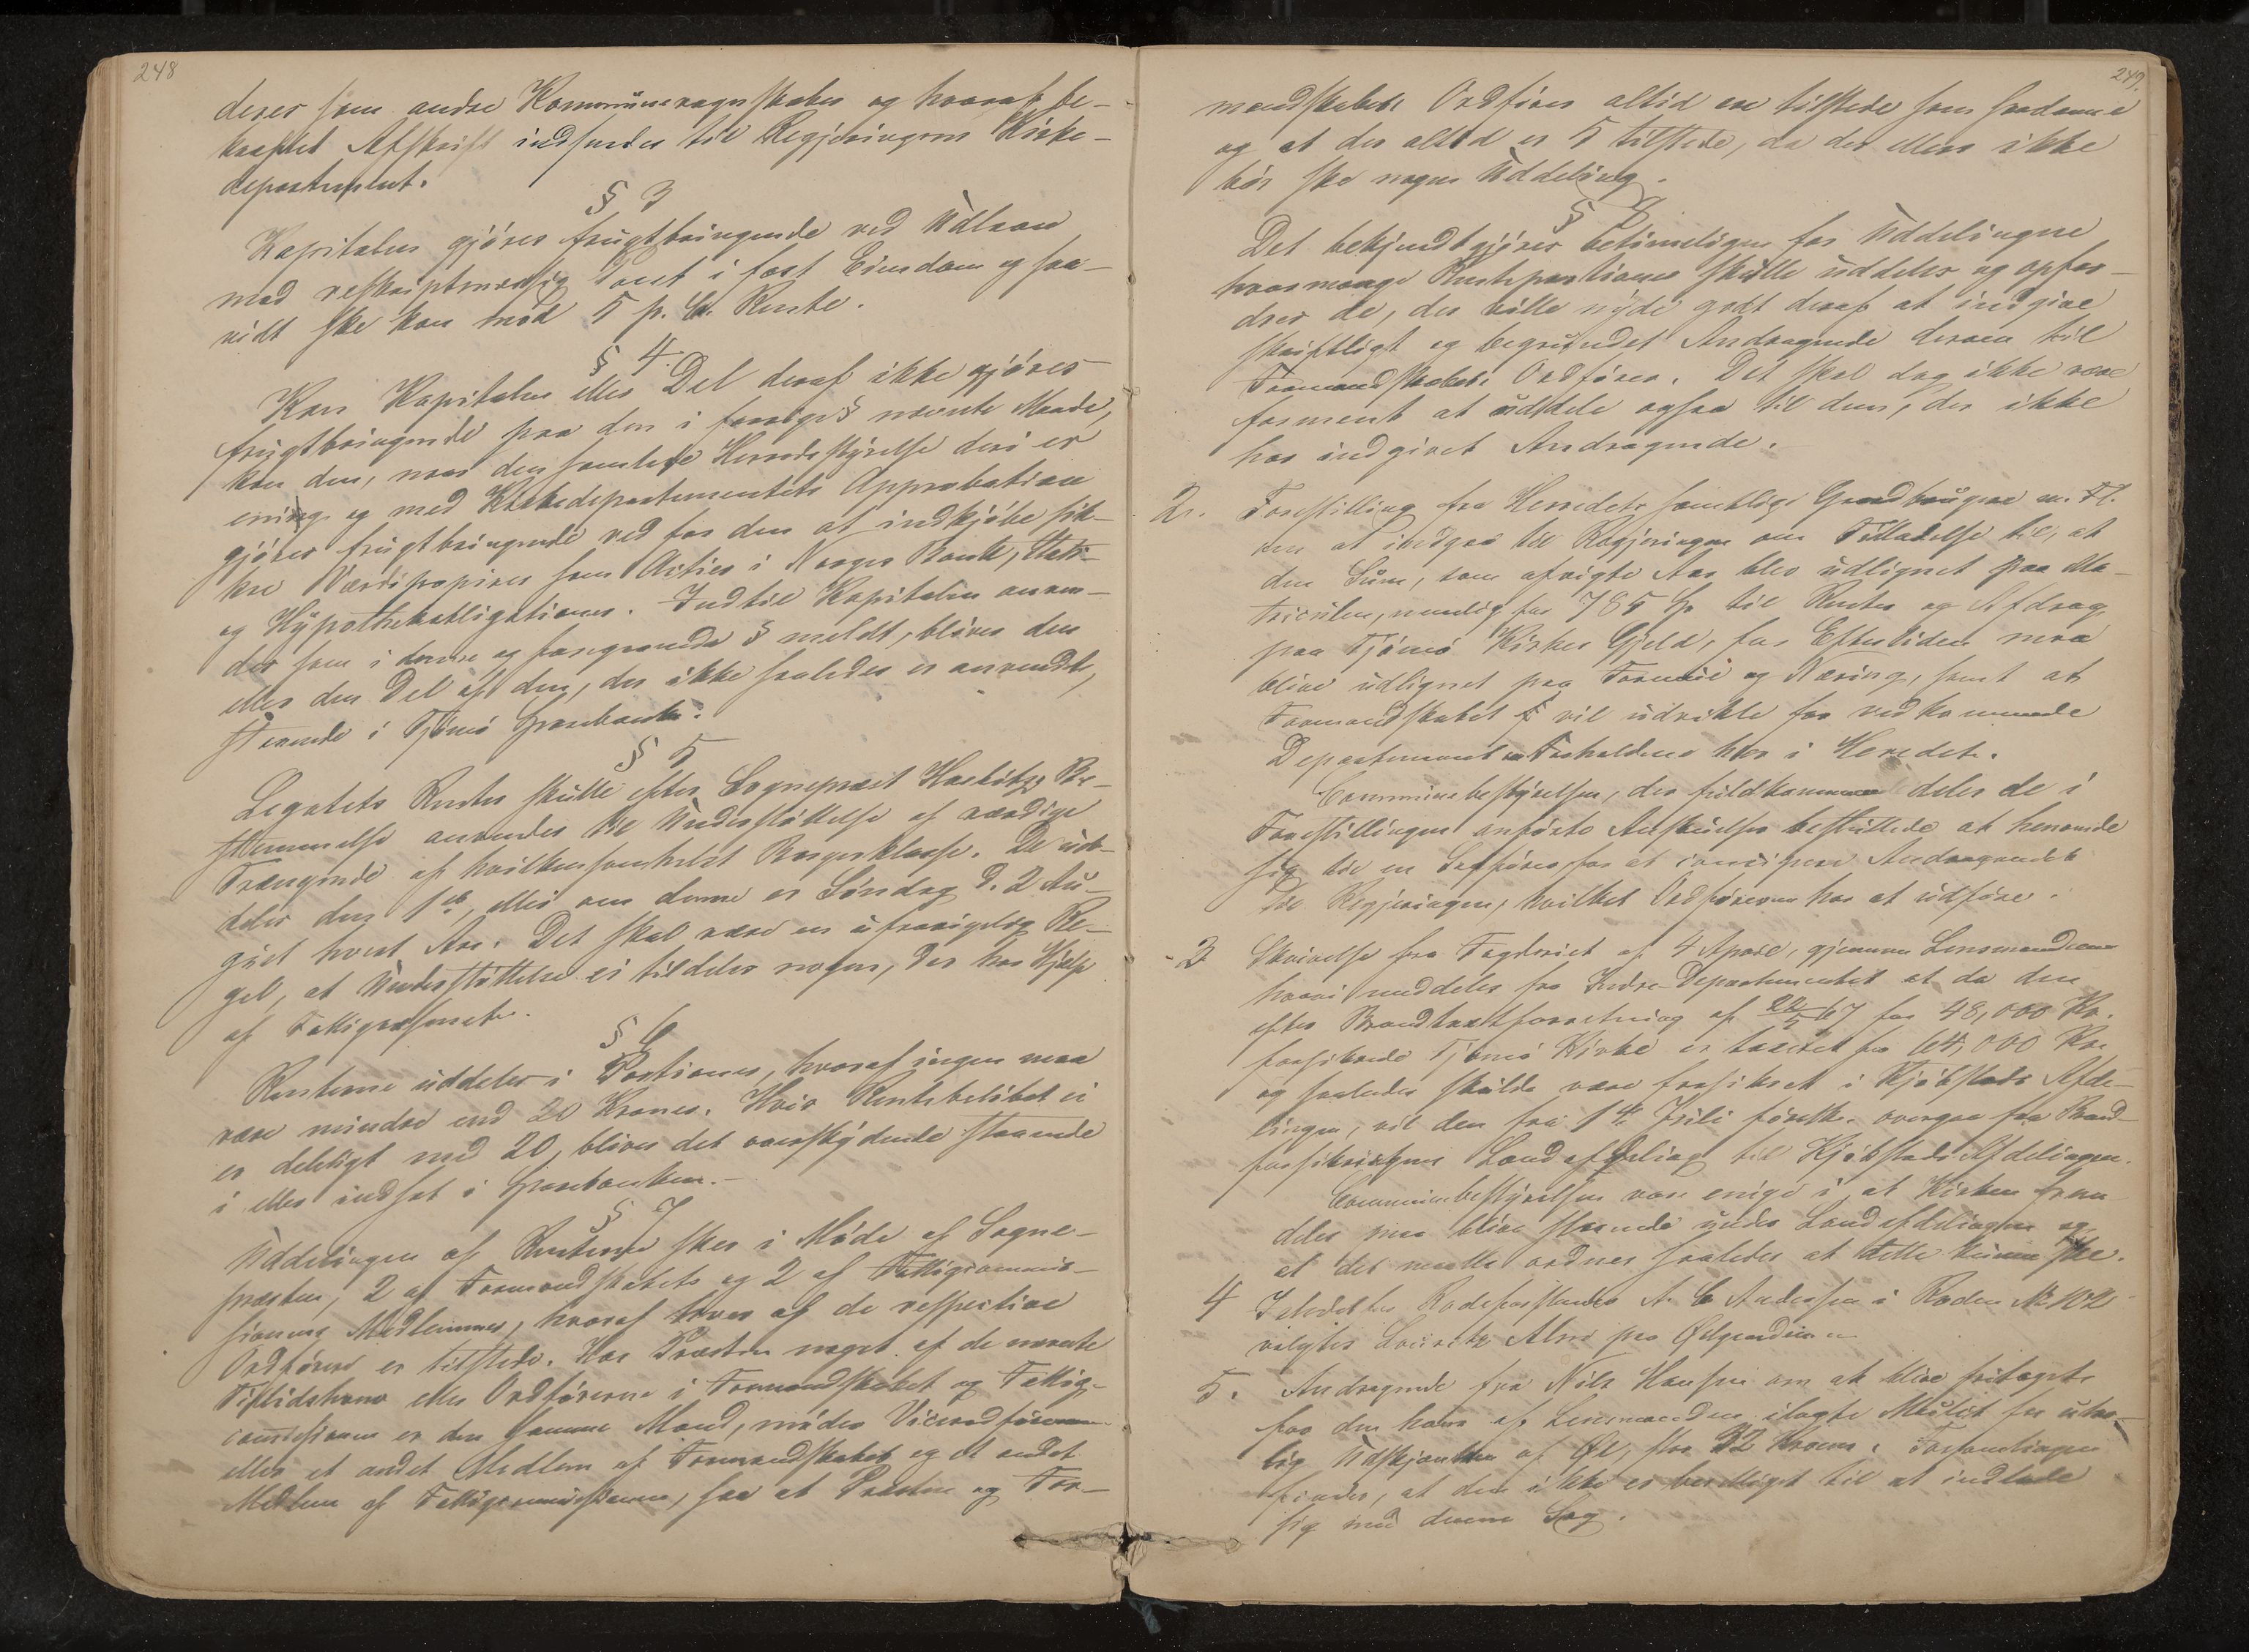 248
deres som andre Kommuneregnskaber og hvoraf be-
kræftet Afskrift indsendes til Regjeringens Kirke-
departement.
§ 3
Kapitalen gjöres frugtbringende ved Udlaan
mod reskriptmæssig Pant i fast Eiendom og saa-
vidt ske kan mod 5 p. Ct. Rente.
§ 4.
Kan Kapitalen eller Del deraf ikke gjöres
frugtbringende paa den i forrige § nævnte Maade,
kan den, naar den samlede Herredsstyrelse deri er
enig og med Kirkedepartementets Approbation
gjöres frugtbringende ved for den at indkjöbe sik-
kre Værdipapirer som Actier i Norges Bank, Stats-
og Hypothekobligationer. Indtil Kapitalen anven-
des som i denne og foregaaende § meldt, bliver den
eller den Del af den, der ikke saaledes er anvendt,
staaende i Tjömö Sparebank.
§ 5
Legatets Renter skulle efter Sogneprest Be-
stemmelse anvendes til Understöttelse af værdige
Trængende af hvilkensomhelst Borgerklasse. De ud-
deles den 1ste, eller om denne er Söndag d. 2 Au-
gust hvert Aar. Det skal være en ufravigelig Re-
gel, at Understöttelse ei tildeles nogen, der har Hjelp
af Fattigvæsenet.
§ 6
Renterne uddeles i Portioner, hvoraf ingen maa
være mindre end 20 Kroner. Hvis Rentebelöbet ei
er deleligt med 20, bliver det overskydende staaende
i eller indsat i Sparebanken.-
§ 7
Uddelingen af Renterne sker i Möde af Sogne-
presten, 2 af Formandskabets og 2 af Fattigcommis-
sionens Medlemmer, hvoraf hver af de respective
Ordförere er tilstede. Har Præsten noget af de nævnte
Tillidshverv eller Ordförerne i Formandskabet og Fattig-
comissionen er den samme Mand, möder Viceordföreren
eller et andet Medlem af Formandskabet og et andet
Medlem af Fattigcommissionen, saa at Præsten og For-
249.
mandskabets Ordförer altid ere tilstede som saadanne
og at der altid er 5 tilstede, da der ellers ikke
bör ske nogen Uddeling.
§ 8
Det bekjendtgjöres betimeligen för Uddelingene
hvormange Renteportioner skulle uddeles og opfor-
drer de, der ville nyde godt deraf at indgive
skriftligt og begrundet Andragende derom til
Formandskabets Ordförer. Det skal dog ikke være
forment at uddele ogsaa til dem, der ikke
har indgivet Andragende.
2. Forestilling fra Herredets samtlige Gaardbrugere m. Fl.
om at indgaa til Regjeringen om Tilladelse til, at
den Sum, som afvigte Aar blev udlignet paa Ma-
triculen, nemlig for 785 til Renter og Afdrag
paa Tjömö Kirkes Gjeld, for Eftertiden maa
blive udlignet paa Formue og Næring, samt at
Formandskabet vil udvikle for vedkommende
Departement Forholdene her i Herredet.
Communebestyrelsen, der fuldkommen deler de i
Forestillingen anförte Anskuelser besluttede at henvende
sig til en Sagförer for at concipere Andragendet
til Regjeringen, hvilket Ordföreren har at udföre.
3 Skrivelse fra Fogderiet af 4 April, gjennem Lensmanden
hvori meddeles fra Indre-Departementet at da den
efter Brandtaxtforretning af 22/5 67 for 48,000 Kr.
forsikrede Tjömö Kirke er taxeret for 64,000 Kr.
og saaledes skulde være forsikret i Kjöbstads Afde-
lingen, vil den fra 1ste Juli förstk. overgaa fra Brand-
forsikringens Landafdeling til Kjöbstads Afdelingen.
Communebestyrelsen vare enige i, at Kirken frem-
deles maa blive staaende under Landafdelingen og
at det maatte ordnes saaledes at dette kunne ske.
4 Istedetfor Rodeforstander A. C Andersen i Roden No 102
valgtes Lauritz Alne paa Ødegaarden
5. Andragende fra Nils Hansen om at blive fritaget
for den ham af Lensmanden ilagte Mulct for ulov-
lig Udskjænkn af Øl, stor 32 Kroner. Forsamlingen
finder, at den ikke er berettiget til at indlade
sig med denne Sag.